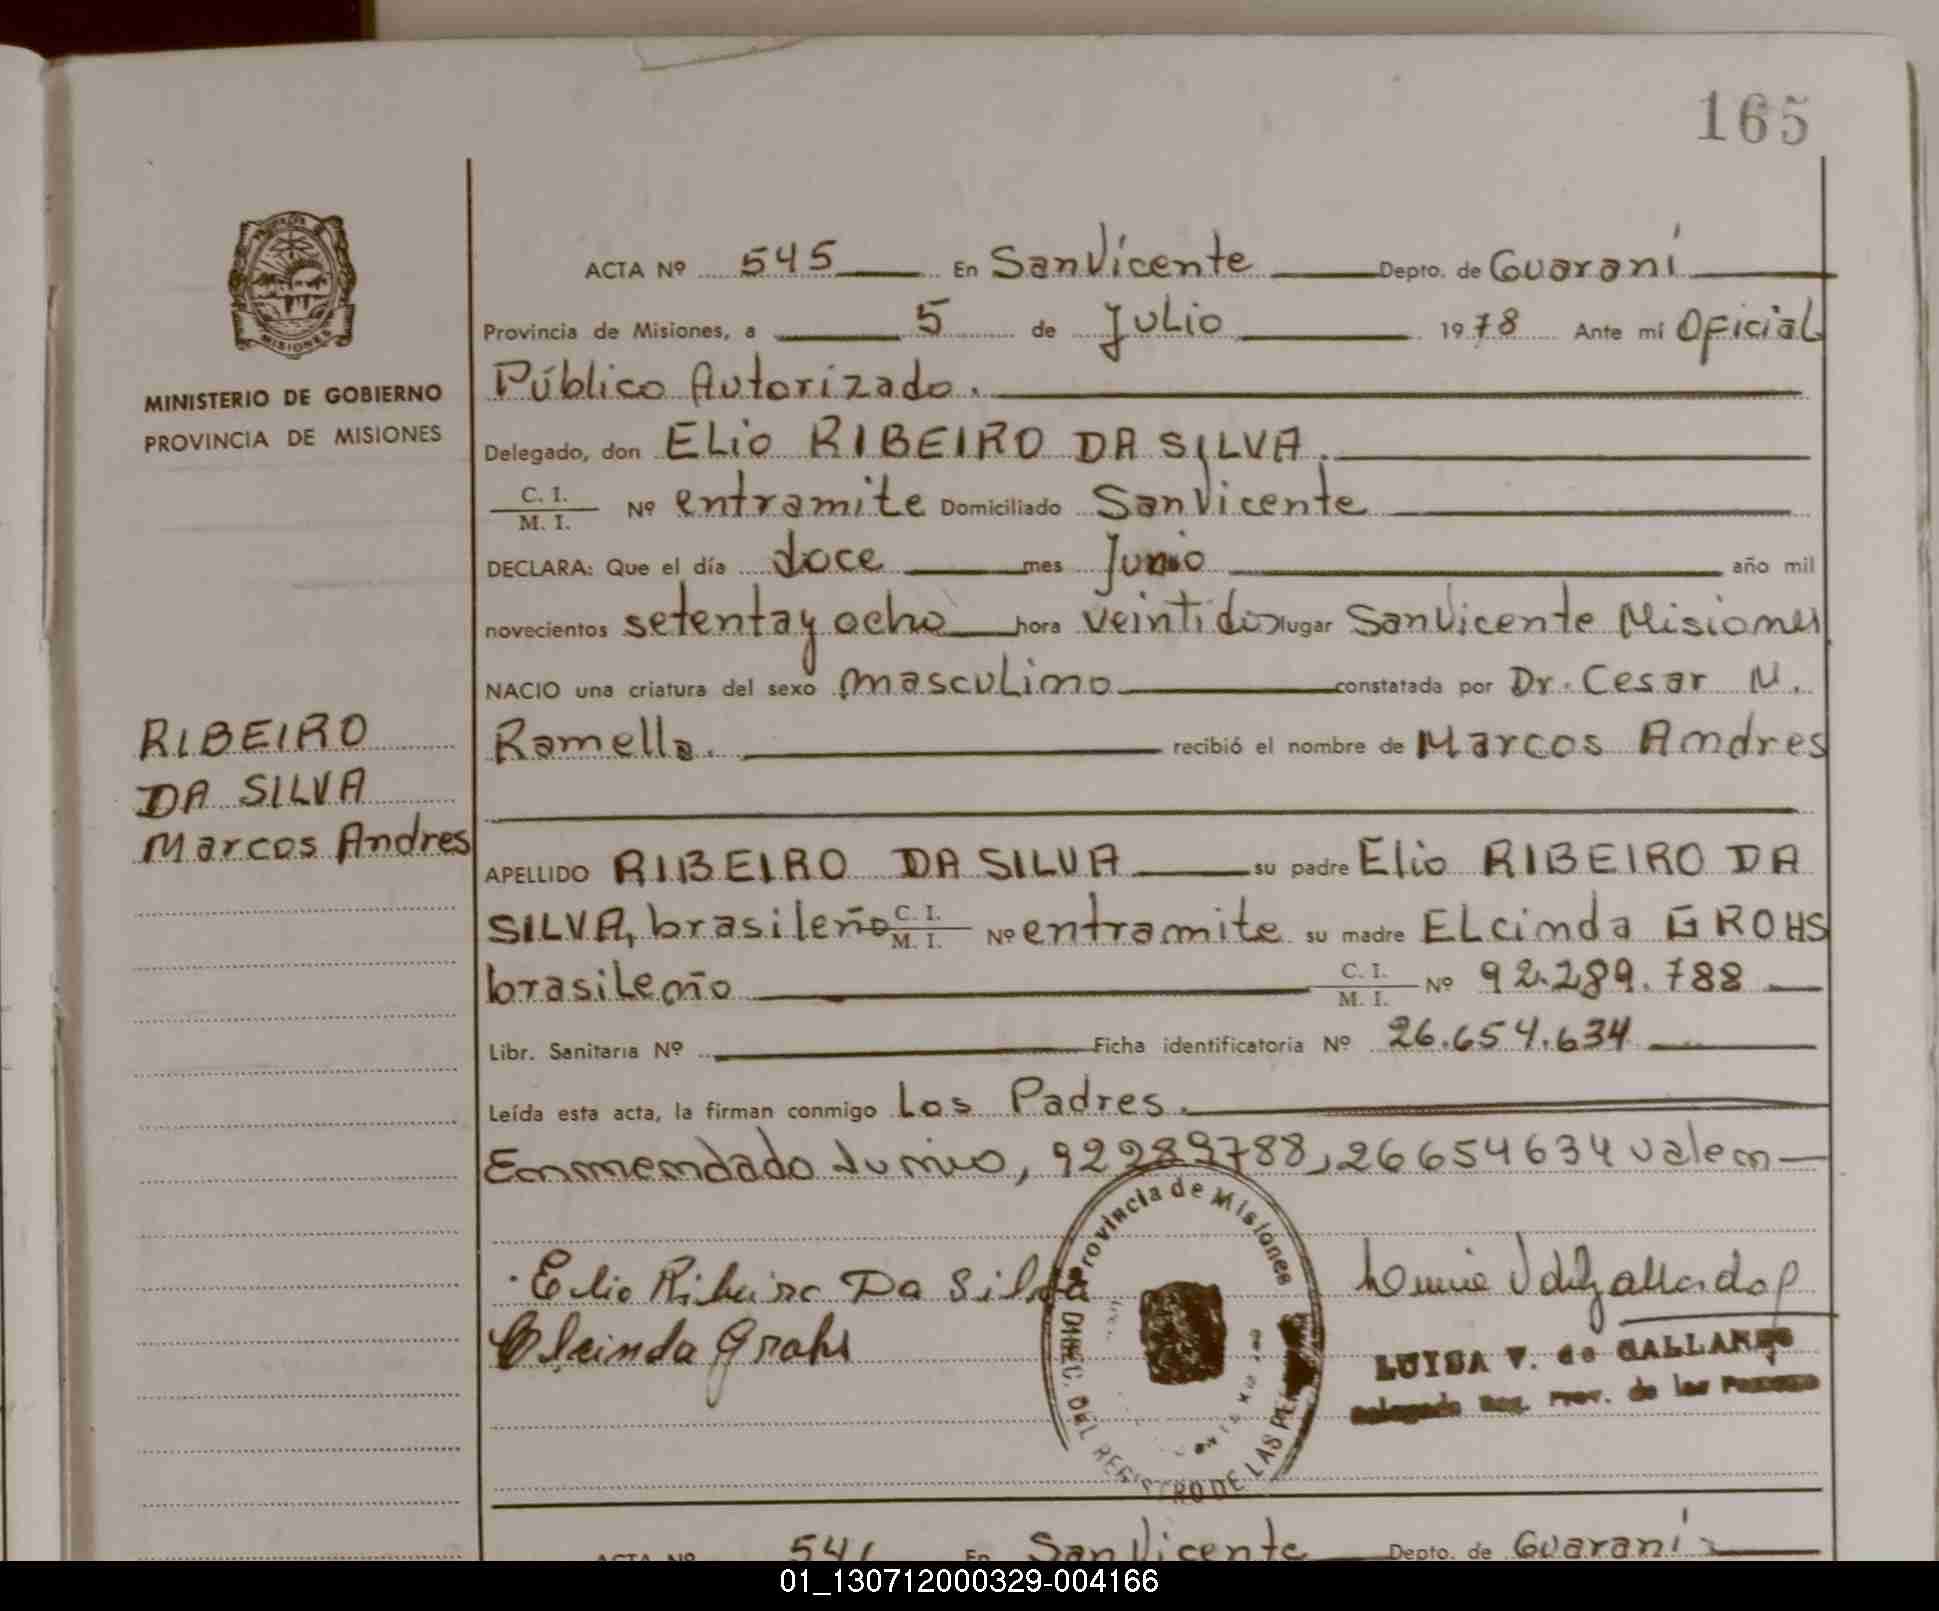 165
ACTA Nº 545 En San Vicente Depto. de Guaraní
Provincia de Misiones, a 5 de Julio 1978 Ante mí Oficial
Público Autorizado.
MINISTERIO DE GOBIERNO
PROVINCIA DE MISIONES
Delegado, don ELio RIBEIRO DA SILVA.
C. I.
M. I. Nº entramite Domiciliado San Vicente
DECLARA: Que el día doce mes Junio año mil
novecientos setenta y ocho hora veintidos lugar San Vicente Misiones
NACIO una criatura del sexo masculino constatada por Dr. Cesar M.
Ramella. recibió el nombre de Marcos Andres
RIBEIRO
DA SILVA
Marcos Andres
APELLIDO RIBEIRO DA SILVA su padre Elio RIBEIRO DA
SILVA, brasileño C. I. M. I. Nº entramite su madre ELcinda GROHS
brasileño C. I. M. I. Nº 92.289.788
Libr. Sanitaria Nº Ficha identificatoria Nº 26.654.634
Leída esta acta, la firman conmigo Los Padres.
Enmendado Junio, 92289788, 26654634 valen
Elio Ribeiro Da Silva
Elcinda Grohs
Provincia de Misiones
DIREC. DEL REGISTRO DE LAS
LUISA V. de GALLARDO
Delegado Reg. Prov. de las Personas
ACTA Nº 54 En San Vicente Depto. de Guaraní
01_130712000329-004166